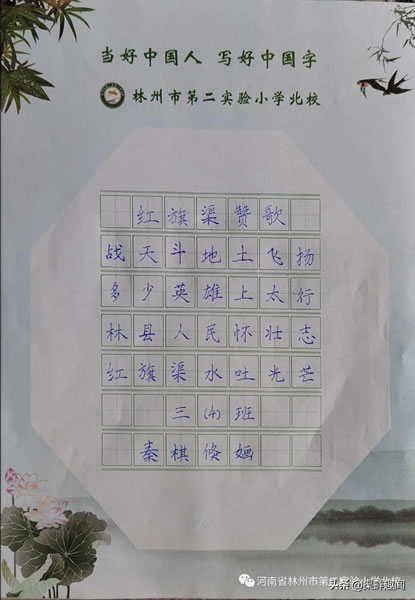 当好中国人 写好中国字
林州市第二实验小学北校
红旗渠赞歌
战天斗地土飞扬
多少英雄上太行
林县人民怀壮志
红旗渠水吐光芒
三(4)班
秦棋倏婳
河南省林州市第二实验小学北校
头条 @柒蚌趣闻